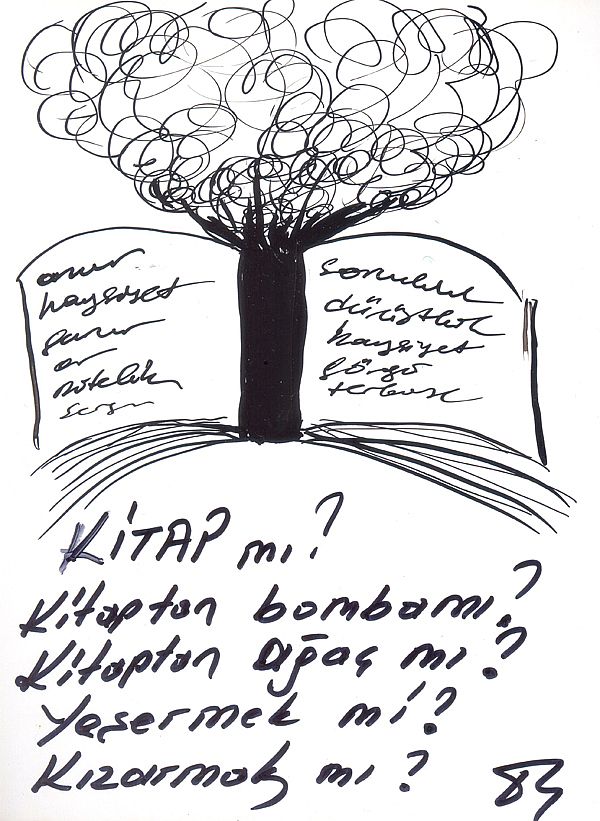 onur
haysiyet
gurur
ar
nitelik
sorumluluk
dürüstlük
haysiyet
görgü
KİTAP mı?
Kitaptan bomba mı?
Kitaptan Ağaç mı?
Yeşermek mi?
Kızarmak mı?